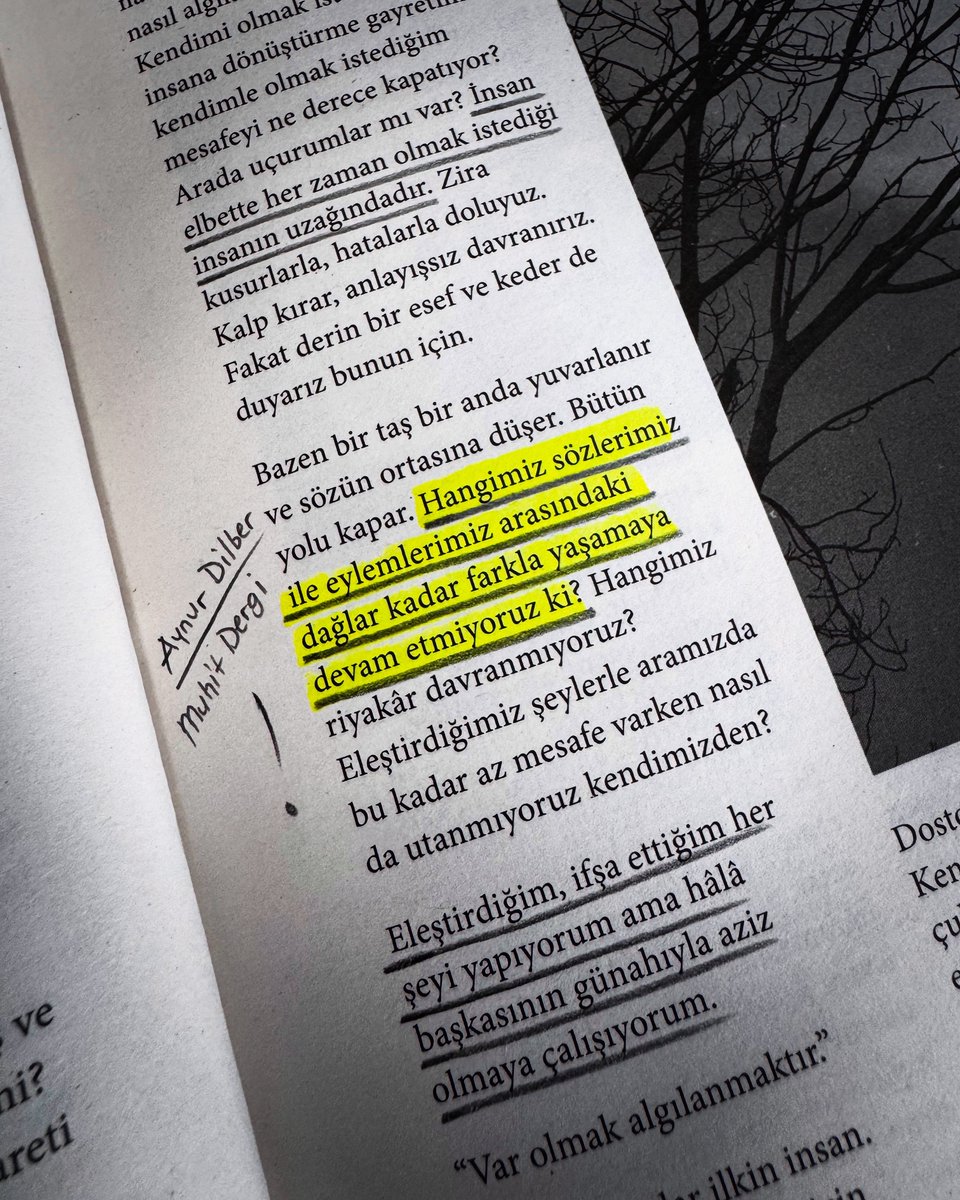 nasıl algı
Kendimi olmak
insana dönüştürme gayretim
kendimle olmak istediğim
mesafeyi ne derece kapatıyor?
Arada uçurumlar mı var? İnsan
elbette her zaman olmak istediği
insanın uzağındadır. Zira
kusurlarla, hatalarla doluyuz.
Kalp kırar, anlayışsız davranırız.
Fakat derin bir esef ve keder de
duyarız bunun için.
Bazen bir taş bir anda yuvarlanır
ve sözün ortasına düşer. Bütün
yolu kapar. Hangimiz sözlerimiz
ile eylemlerimiz arasındaki
dağlar kadar farkla yaşamaya
devam etmiyoruz ki? Hangimiz
riyakâr davranmıyoruz?
Eleştirdiğimiz şeylerle aramızda
bu kadar az mesafe varken nasıl
da utanmıyoruz kendimizden?
Eleştirdiğim, ifşa ettiğim her
şeyi yapıyorum ama hâlâ
başkasının günahıyla aziz
olmaya çalışıyorum.
“Var olmak algılanmaktır.”
ilkin insan.
Aynur Dilber
Muhit Dergi
!
ve
mi?
areti
Dosto
Ken
çu